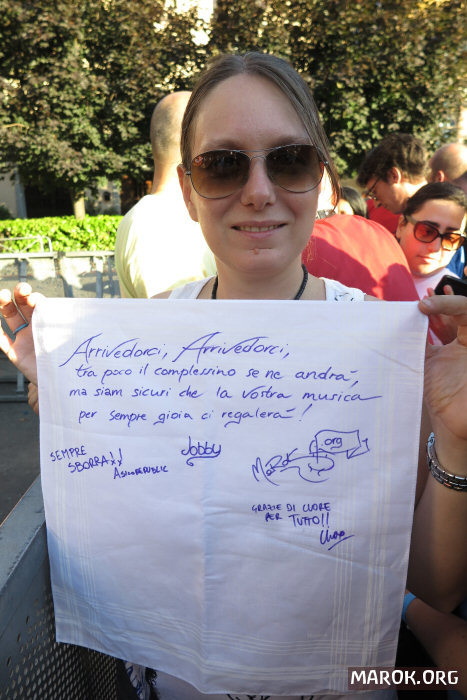 Arrivedorci, Arrivedorci,
tra poco il complessino se ne andrà,
ma siam sicuri che la vostra musica
per sempre gioia ci regalerà!
SEMPRE
SBORRA!!
ASINOREPUBLIC
Jobby
MaRoK .org
GRAZIE DI CUORE
PER TUTTO!!
MAROK.ORG